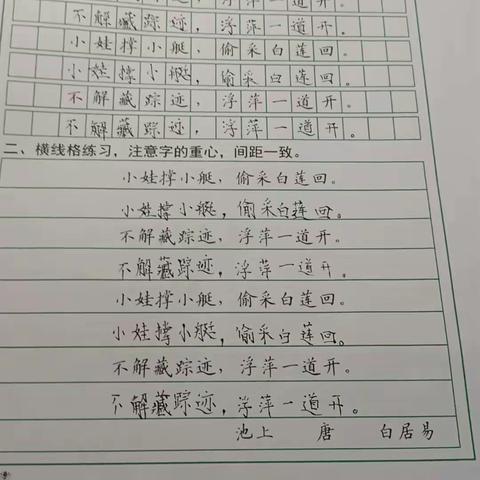 不解藏踪迹，浮萍一道开。
不解藏踪迹，浮萍一道开。
小娃撑小艇，偷采白莲回。
小娃撑小艇，偷采白莲回。
不解藏踪迹，浮萍一道开。
不解藏踪迹，浮萍一道开。
二、横线格练习，注意字的重心，间距一致。
小娃撑小艇，偷采白莲回。
小娃撑小艇，偷采白莲回。
不解藏踪迹，浮萍一道开。
不解藏踪迹，浮萍一道开。
小娃撑小艇，偷采白莲回。
小娃撑小艇，偷采白莲回。
不解藏踪迹，浮萍一道开。
不解藏踪迹，浮萍一道开。
池上 唐 白居易